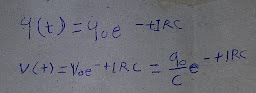 q(t) = q₀e^-t/RC
V(t) = V₀e^-t/RC = q₀/C e^-t/RC